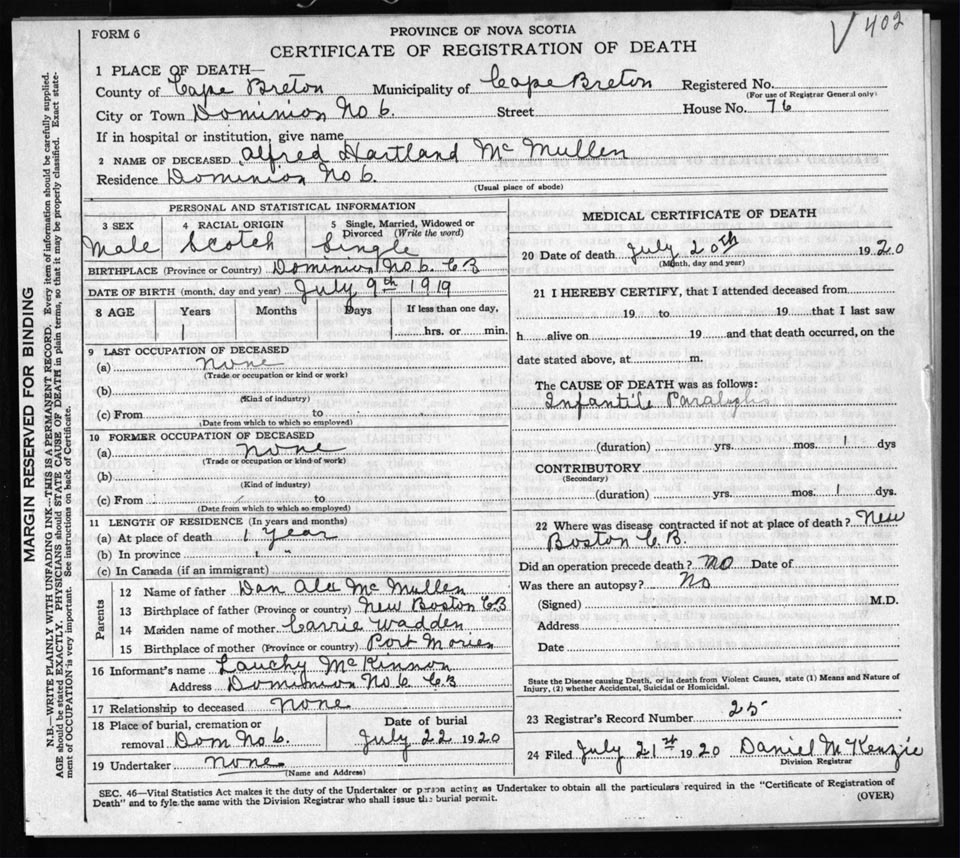 V 402
FORM 6
PROVINCE OF NOVA SCOTIA
CERTIFICATE OF REGISTRATION OF DEATH
1 PLACE OF DEATH—
County of Cape Breton Municipality of Cape Breton Registered No.
(For use of Registrar General only)
City or Town Dominion No 6. Street House No. 76
If in hospital or institution, give name
2 NAME OF DECEASED Alfred Hartland Mc Mullen
Residence Dominion No 6.
(Usual place of abode)
PERSONAL AND STATISTICAL INFORMATION
3 SEX 4 RACIAL ORIGIN 5 Single, Married, Widowed or Divorced (Write the word)
Male Scotch Single
BIRTHPLACE (Province or Country) Dominion No 6. C B
DATE OF BIRTH (month, day and year) July 9th 1919
8 AGE Years Months Days If less than one day,
1 hrs. or min.
9 LAST OCCUPATION OF DECEASED
(a) None
(Trade or occupation or kind or work)
(b)
(Kind of industry)
(c) From to
(Date from which to which so employed)
10 FORMER OCCUPATION OF DECEASED
(a) None
(Trade or occupation or kind of work)
(b)
(Kind of industry)
(c) From to
(Date from which to which so employed)
11 LENGTH OF RESIDENCE (In years and months)
(a) At place of death 1 Year
(b) In province " "
(c) In Canada (if an immigrant)
Parents
12 Name of father Dan Alex Mc Mullen
13 Birthplace of father (Province or country) New Boston C B
14 Maiden name of mother Carrie Wadden
15 Birthplace of mother (Province or country) Port Morien
16 Informant's name Lauchy McKinnon
Address Dominion No 6 C B
17 Relationship to deceased None
18 Place of burial, cremation or removal Dom No 6. Date of burial July 22 1920
19 Undertaker None
(Name and Address)
MEDICAL CERTIFICATE OF DEATH
20 Date of death July 20th 1920
(Month, day and year)
21 I HEREBY CERTIFY, that I attended deceased from
19 to 19 that I last saw
h alive on 19 and that death occurred, on the
date stated above, at m.
The CAUSE OF DEATH was as follows:
Infantile Paralysis
(duration) yrs. mos. 1 dys
CONTRIBUTORY
(Secondary)
(duration) yrs. mos. 1 dys.
22 Where was disease contracted if not at place of death? New
Boston C B.
Did an operation precede death? No Date of
Was there an autopsy? No
(Signed) M.D.
Address
Date
State the Disease causing Death, or in death from Violent Causes, state (1) Means and Nature of
Injury, (2) whether Accidental, Suicidal or Homicidal.
23 Registrar's Record Number 25
24 Filed July 21st 1920 Daniel McKenzie
Division Registrar
SEC. 46—Vital Statistics Act makes it the duty of the Undertaker or person acting as Undertaker to obtain all the particulars required in the "Certificate of Registration of
Death" and to fyle the same with the Division Registrar who shall issue the burial permit.
(OVER)
MARGIN RESERVED FOR BINDING
N.B.—WRITE PLAINLY WITH UNFADING INK—THIS IS A PERMANENT RECORD. Every item of information should be carefully supplied.
AGE should be stated EXACTLY. PHYSICIANS should STATE CAUSE OF DEATH in plain terms, so that it may be properly classified. Exact state-
ment of OCCUPATION is very important. See instructions on back of Certificate.